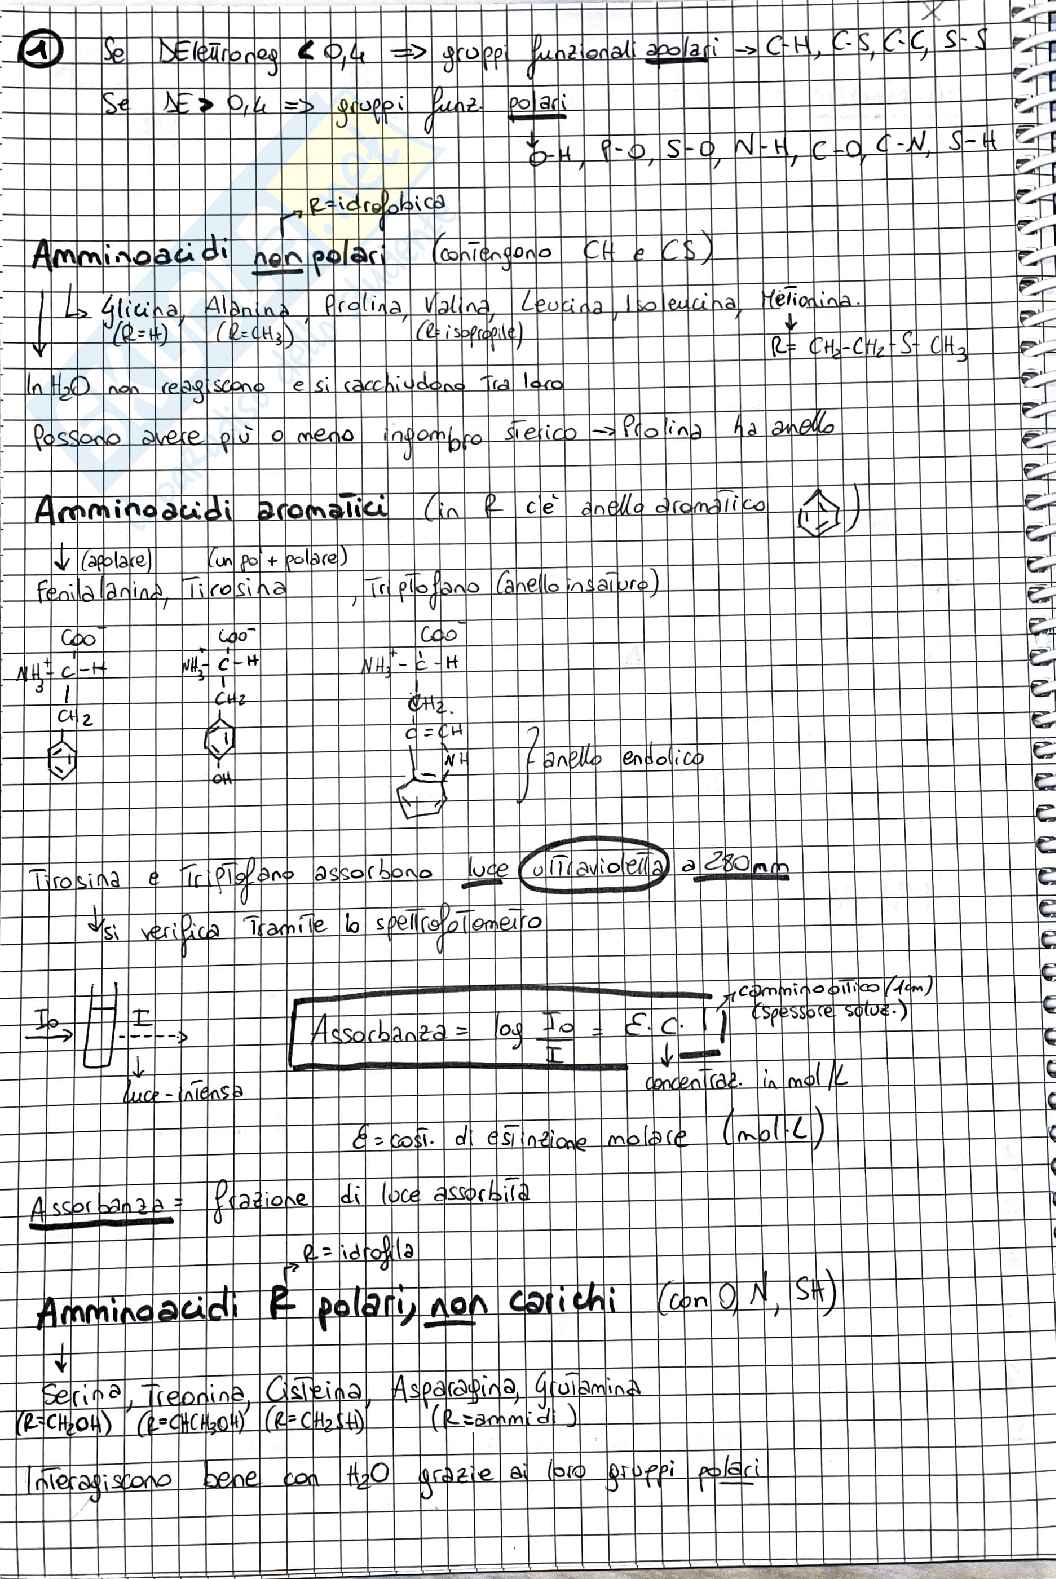 1 Se ΔElettroneg < 0,4 => gruppi funzionali apolari → C-H, C-S, C-C, S-S
Se ΔE > 0,4 => gruppi funz. polari
O-H, P-O, S-O, N-H, C-O, C-N, S-H
R=idrofobica
Amminoacidi non polari (contengono CH e CS)
Glicina, Alanina, Prolina, Valina, Leucina, Isoleucina, Metionina.
(R=H) (R=CH3) (R=isopropile)
R= CH2-CH2-S-CH3
In H2O non reagiscono e si racchiudono tra loro
Possono avere più o meno ingombro sterico → Prolina ha anello
Amminoacidi aromatici (in R c'è anello aromatico)
↓ (apolare) (un po' + polare)
Fenilalanina, Tirosina, Triptofano (anello insaturo)
COO⁻ COO⁻ COO⁻
NH3⁺-C-H NH3⁺-C-H NH3⁺-C-H
CH2 CH2 CH2.
C=CH
NH
OH
} anello endolico
Tirosina e Triptofano assorbono luce ultravioletta a 280nm
↓ si verifica tramite lo spettrofotometro
→ cammino ottico (1cm)
(spessore soluz.)
I0 I
Assorbanza = log I0/I = ε. c. l
luce-intensa
concentraz. in mol/L
ε = cost. di estinzione molare (mol·L)
Assorbanza = frazione di luce assorbita
R = idrofila
Amminoacidi R polari, non carichi (con O, N, SH)
↓
Serina, Treonina, Cisteina, Asparagina, Glutamina
(R=CH2OH) (R=CHCH3OH) (R=CH2SH) (R=ammidi)
Interagiscono bene con H2O grazie ai loro gruppi polari